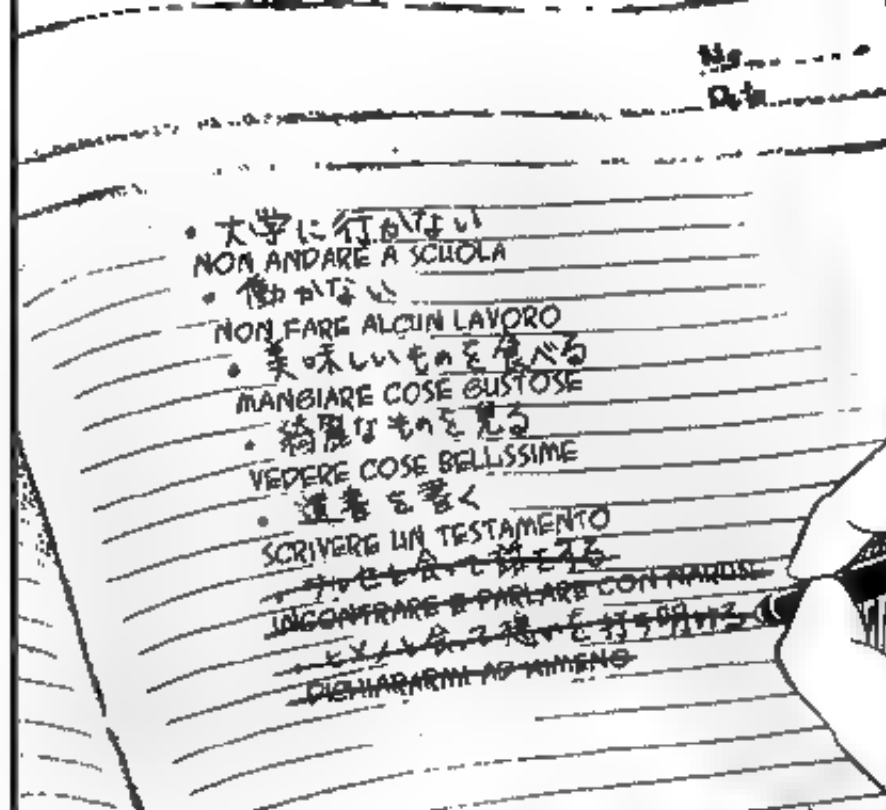 No.
Date
・大学に行かない
NON ANDARE A SCUOLA
・働かない
NON FARE ALCUN LAVORO
・美味しいものを食べる
MANGIARE COSE GUSTOSE
・綺麗なものを見る
VEDERE COSE BELLISSIME
・遺書を書く
SCRIVERE UN TESTAMENTO
・ナルセと会って話をする
INCONTRARE E PARLARE CON NARUSE
・ヒメノと会って想いを打ち明ける
DICHIARARMI AD HIMENO